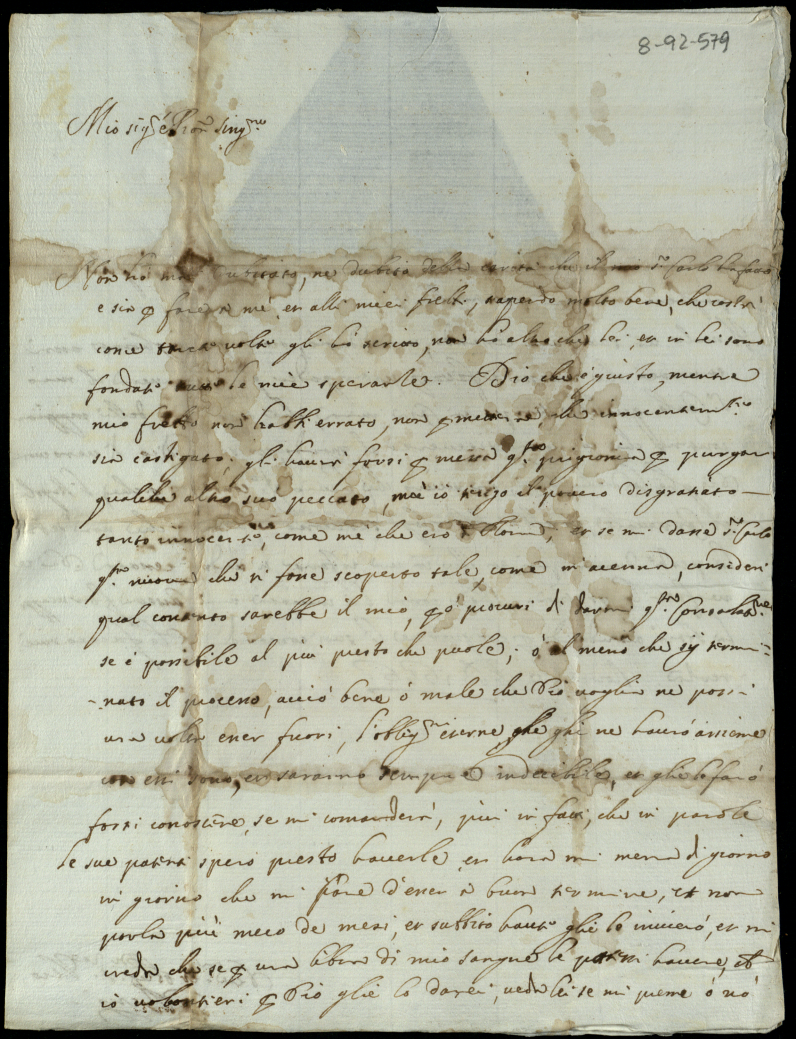 8-92-579
Mio sig.r e Pron sing.mo
Non ho mai dubitato, ne dubito della carità che il mio S.r Carlo ha fatto
e sia p fare a me, et alli miei frelli, sapendo molto bene, che costì
come tante volte gli hò scritto, non hò altro che lei, et in lei sono
fondate tutte le mie speranze. Dio che è giusto, mentre
mio frello non habbi errato, non che innocentem.te
sia castigato, gli havrà forsi p messa q.sta prigionia p purgar
qualche altro suo peccato, mà io tengo il povero disgratiato
tanto innocente, come me che ero a Roma, et se mi dasse S.r Carlo
q.sta nuova che si fosse scoperto tale, come m'acenna, consideri
qual contento sarebbe il mio, p ò procuri di darmi q.sta Consolat.ne
se è possibile al più presto che puole, ò al meno che sij termi=
=nato il processo, acciò bene ò male che Dio voglia ne possi
una volta esser fuori, l'oblig.ni eterne, che gli ne havrò assieme
con essi sono, et saranno sempre indicibile, et glie lo farò
forsi conoscere, se mi comanderà, più in fatti, che in parole
le sue patenti spero presto haverle, et hora mi mena di giorno
in giorno che mi pare d'esser a buon termine, et non
parla più meco de mesi, et subbito haute glie le invierò, et mi
creda che se p una libra di mio sangue le potessi havere,
io volontieri p Dio glie lo darei, veda lei se mi preme ò nò